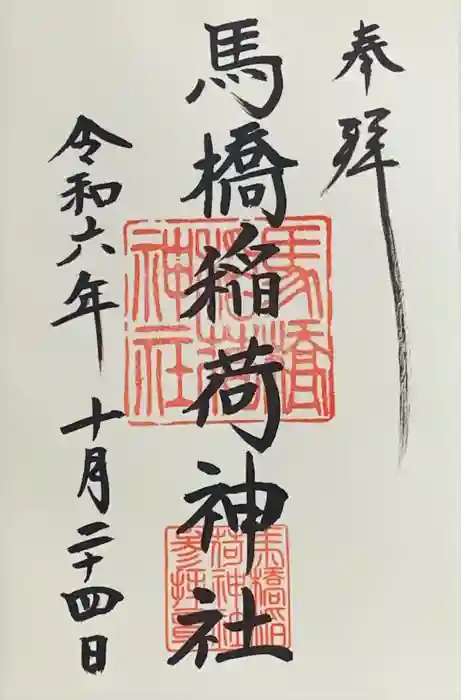 奉拝
馬橋稲荷神社
令和六年 十月二十四日
馬橋
稲荷
神社
馬橋稲
荷神社
参拝章